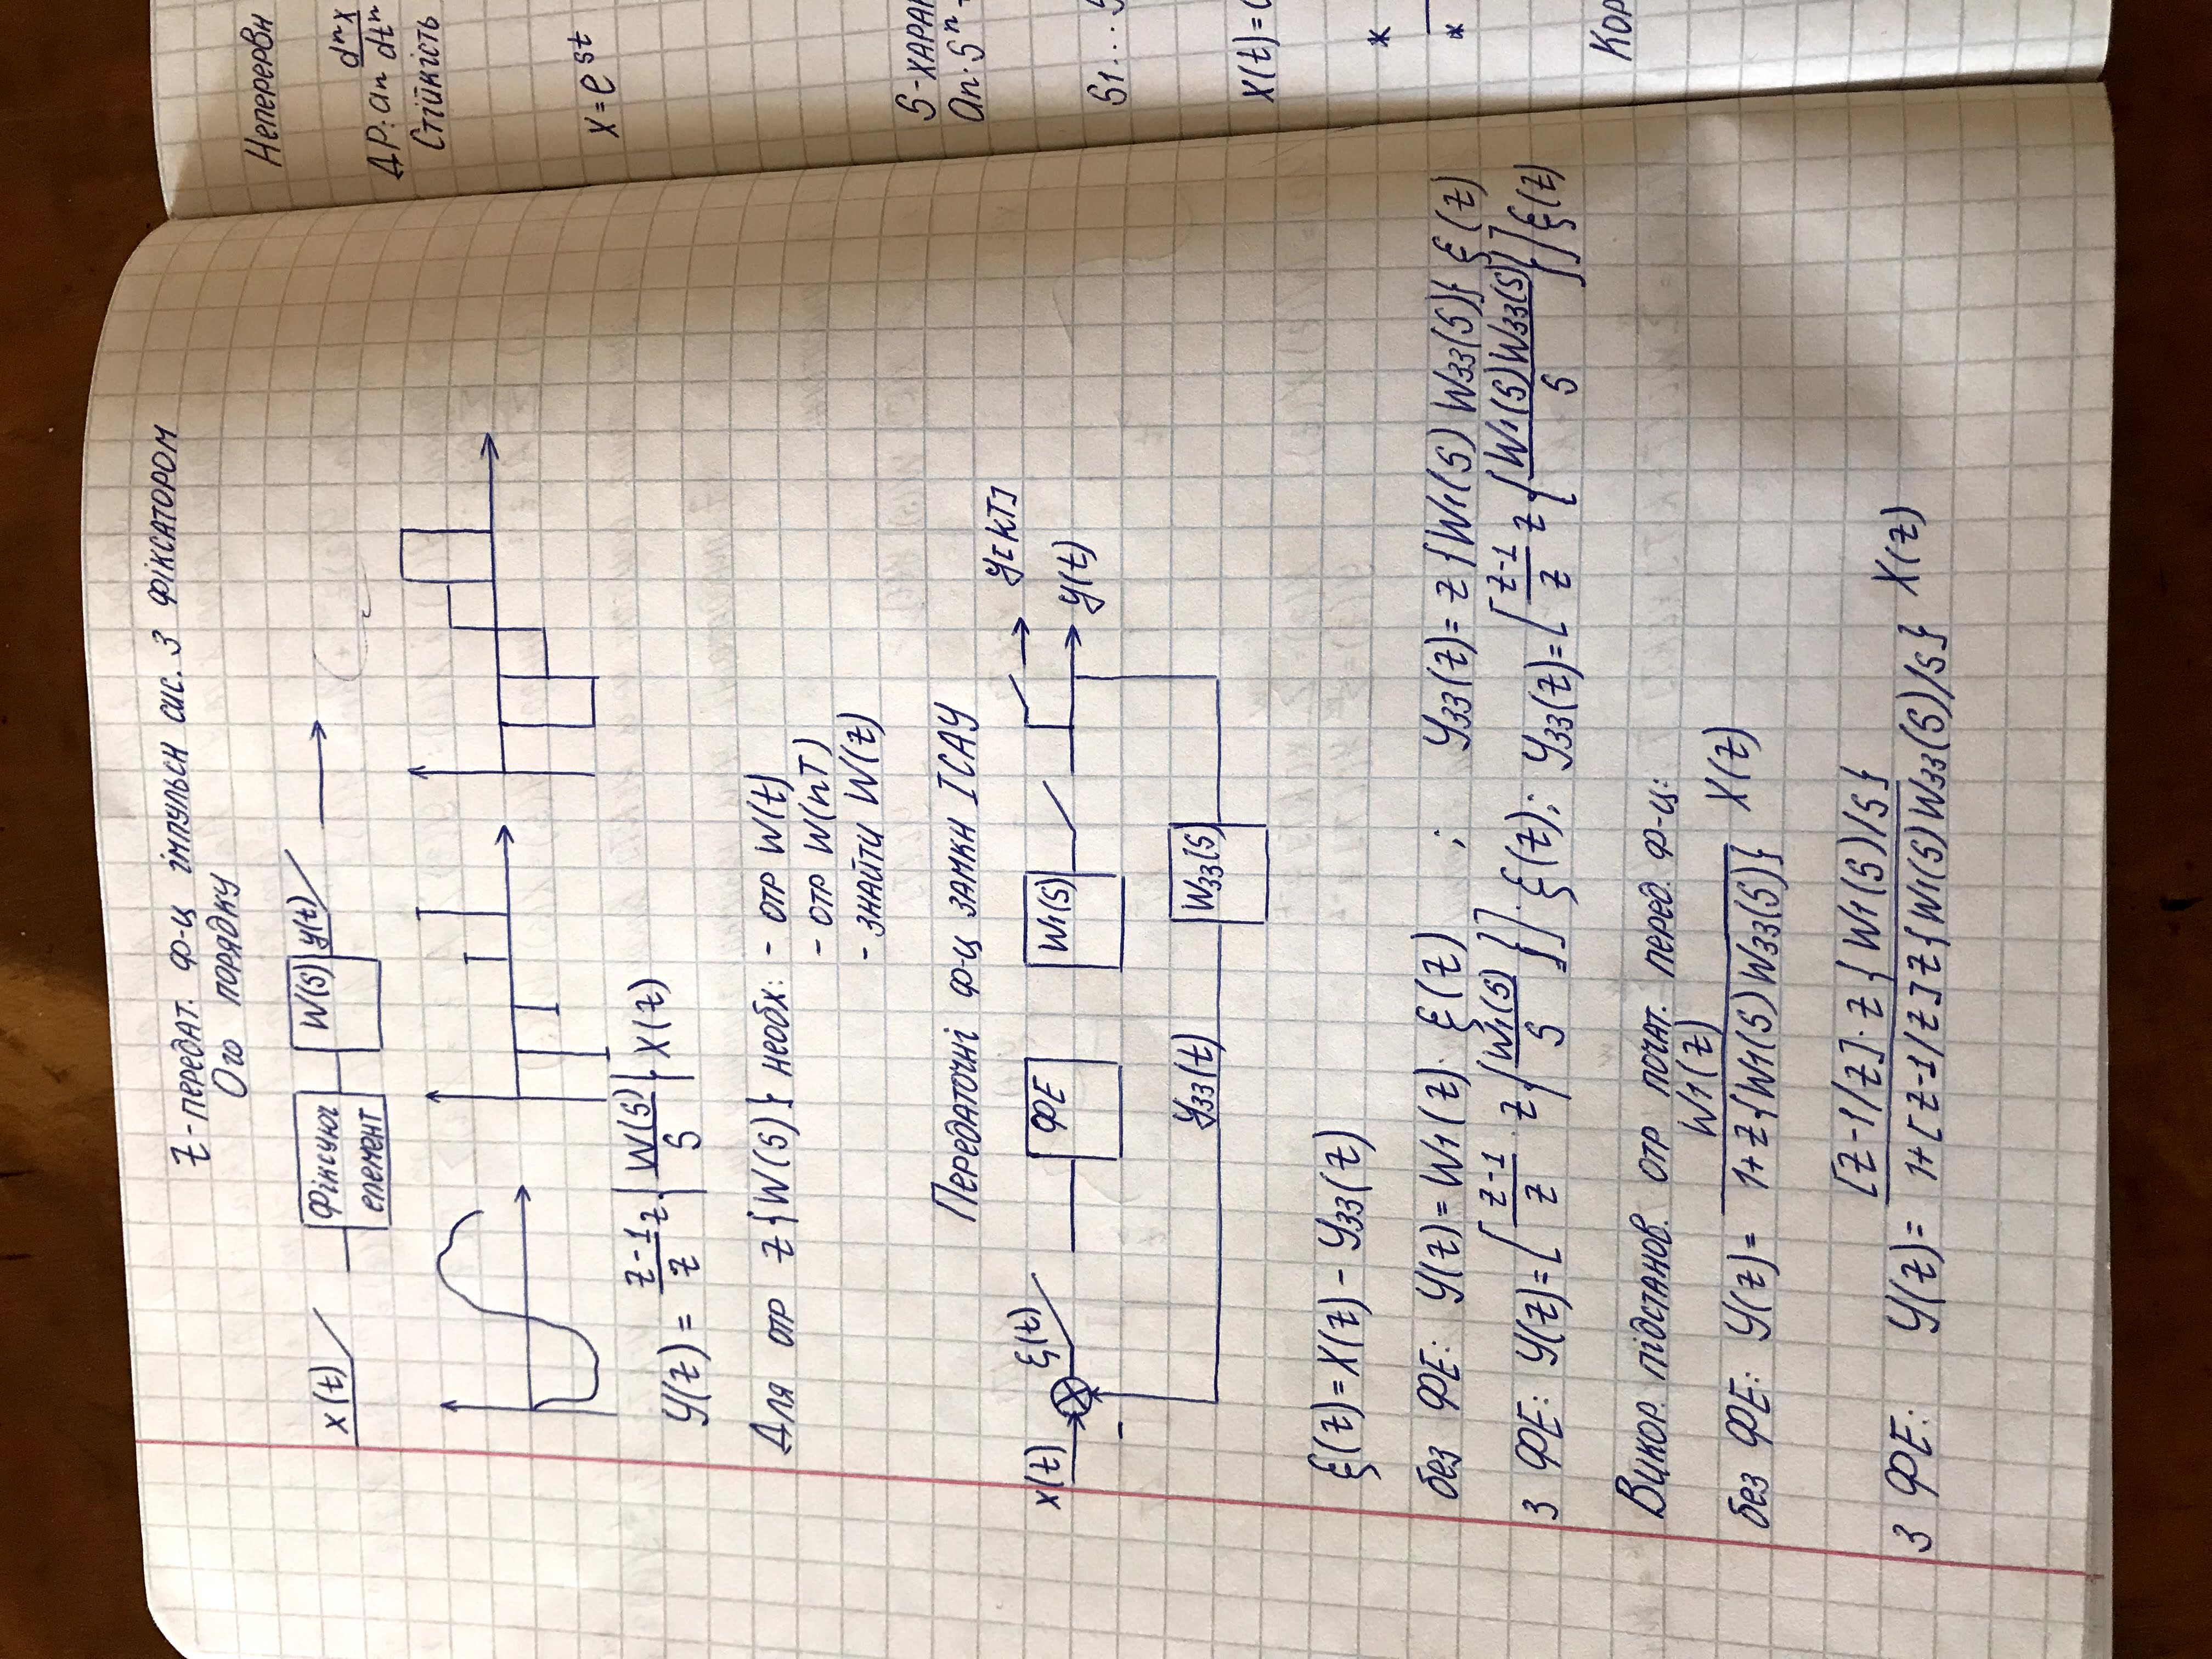 Z-передат. ф-ц імпульсн сис. з фіксатором
0го порядку
x(t) Фіксуюч елемент W(s) y(t)
Y(z) = z-1/z z{W(s)/s} X(z)
Для отр z{W(s)} необх: - отр W(t)
- отр W(nT)
- знайти W(z)
Передаточні ф-ц замкн ІСАУ
x(t) ξ(t) ФЕ W1(s) y[kT]
y(t)
-
Yзз(t) Wзз(s)
ξ(z) = X(z) - Yзз(z)
без ФЕ: Y(z) = W1(z) · ξ(z) ; Yзз(z) = z{W1(s) Wзз(s)} ξ(z)
з ФЕ: Y(z) = [z-1/z · z{W1(s)/s}] · ξ(z); Yзз(z) = [z-1/z z{W1(s)Wзз(s)/s}] ξ(z)
Викор. підстанов. отр почат. перед. ф-ц:
без ФЕ: Y(z) = W1(z) / 1+z{W1(s)Wзз(s)} X(z)
з ФЕ: Y(z) = [z-1/z]·z{W1(s)/s} / 1+[z-1/z]z{W1(s)Wзз(s)/s} X(z)
Неперервн
ДР: an d^n x/dt^n
Стійкість
x = e^st
an·s^n
s1...
x(t) =
*
*